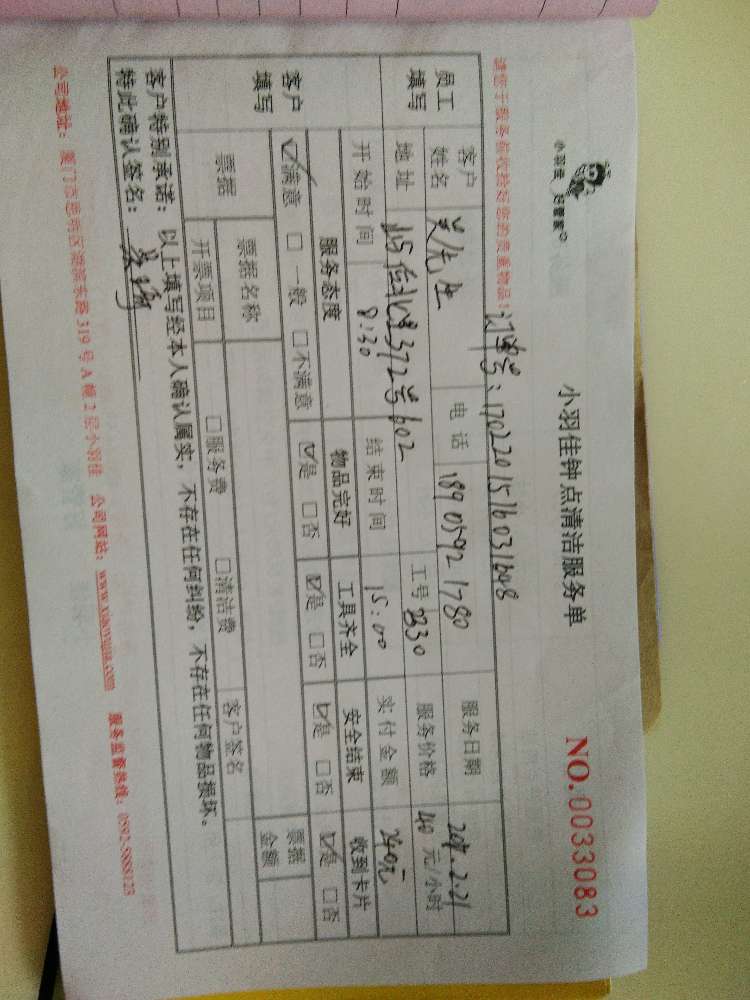 小羽佳 好管家
小羽佳钟点清洁服务单
NO.0033083
订单号：1702201516031608
请您于服务前收拾好您的贵重物品！
员工填写
客户姓名 先生 电话 18905921780 服务日期 2017.2.21
地址 372号602 工号 2330 服务价格 40 元/小时
开始时间 8:30 结束时间 15:00 实付金额 240元
客户填写
服务态度 物品完好 工具齐全 安全结束 收到卡片
☑满意 □一般 □不满意 ☑是 □否 ☑是 □否 ☑是 □否 ☑是 □否
票据 票据名称 票据金额
开票项目 □服务费 □清洁费 客户签名
客户特别承诺：以上填写经本人确认属实，不存在任何纠纷，不存在任何物品损坏。
特此确认签名：
公司地址：厦门市思明区湖滨东路319号A幢2层小羽佳 公司网站：www.xiaoyujia.com 服务监督热线：0592-5888123